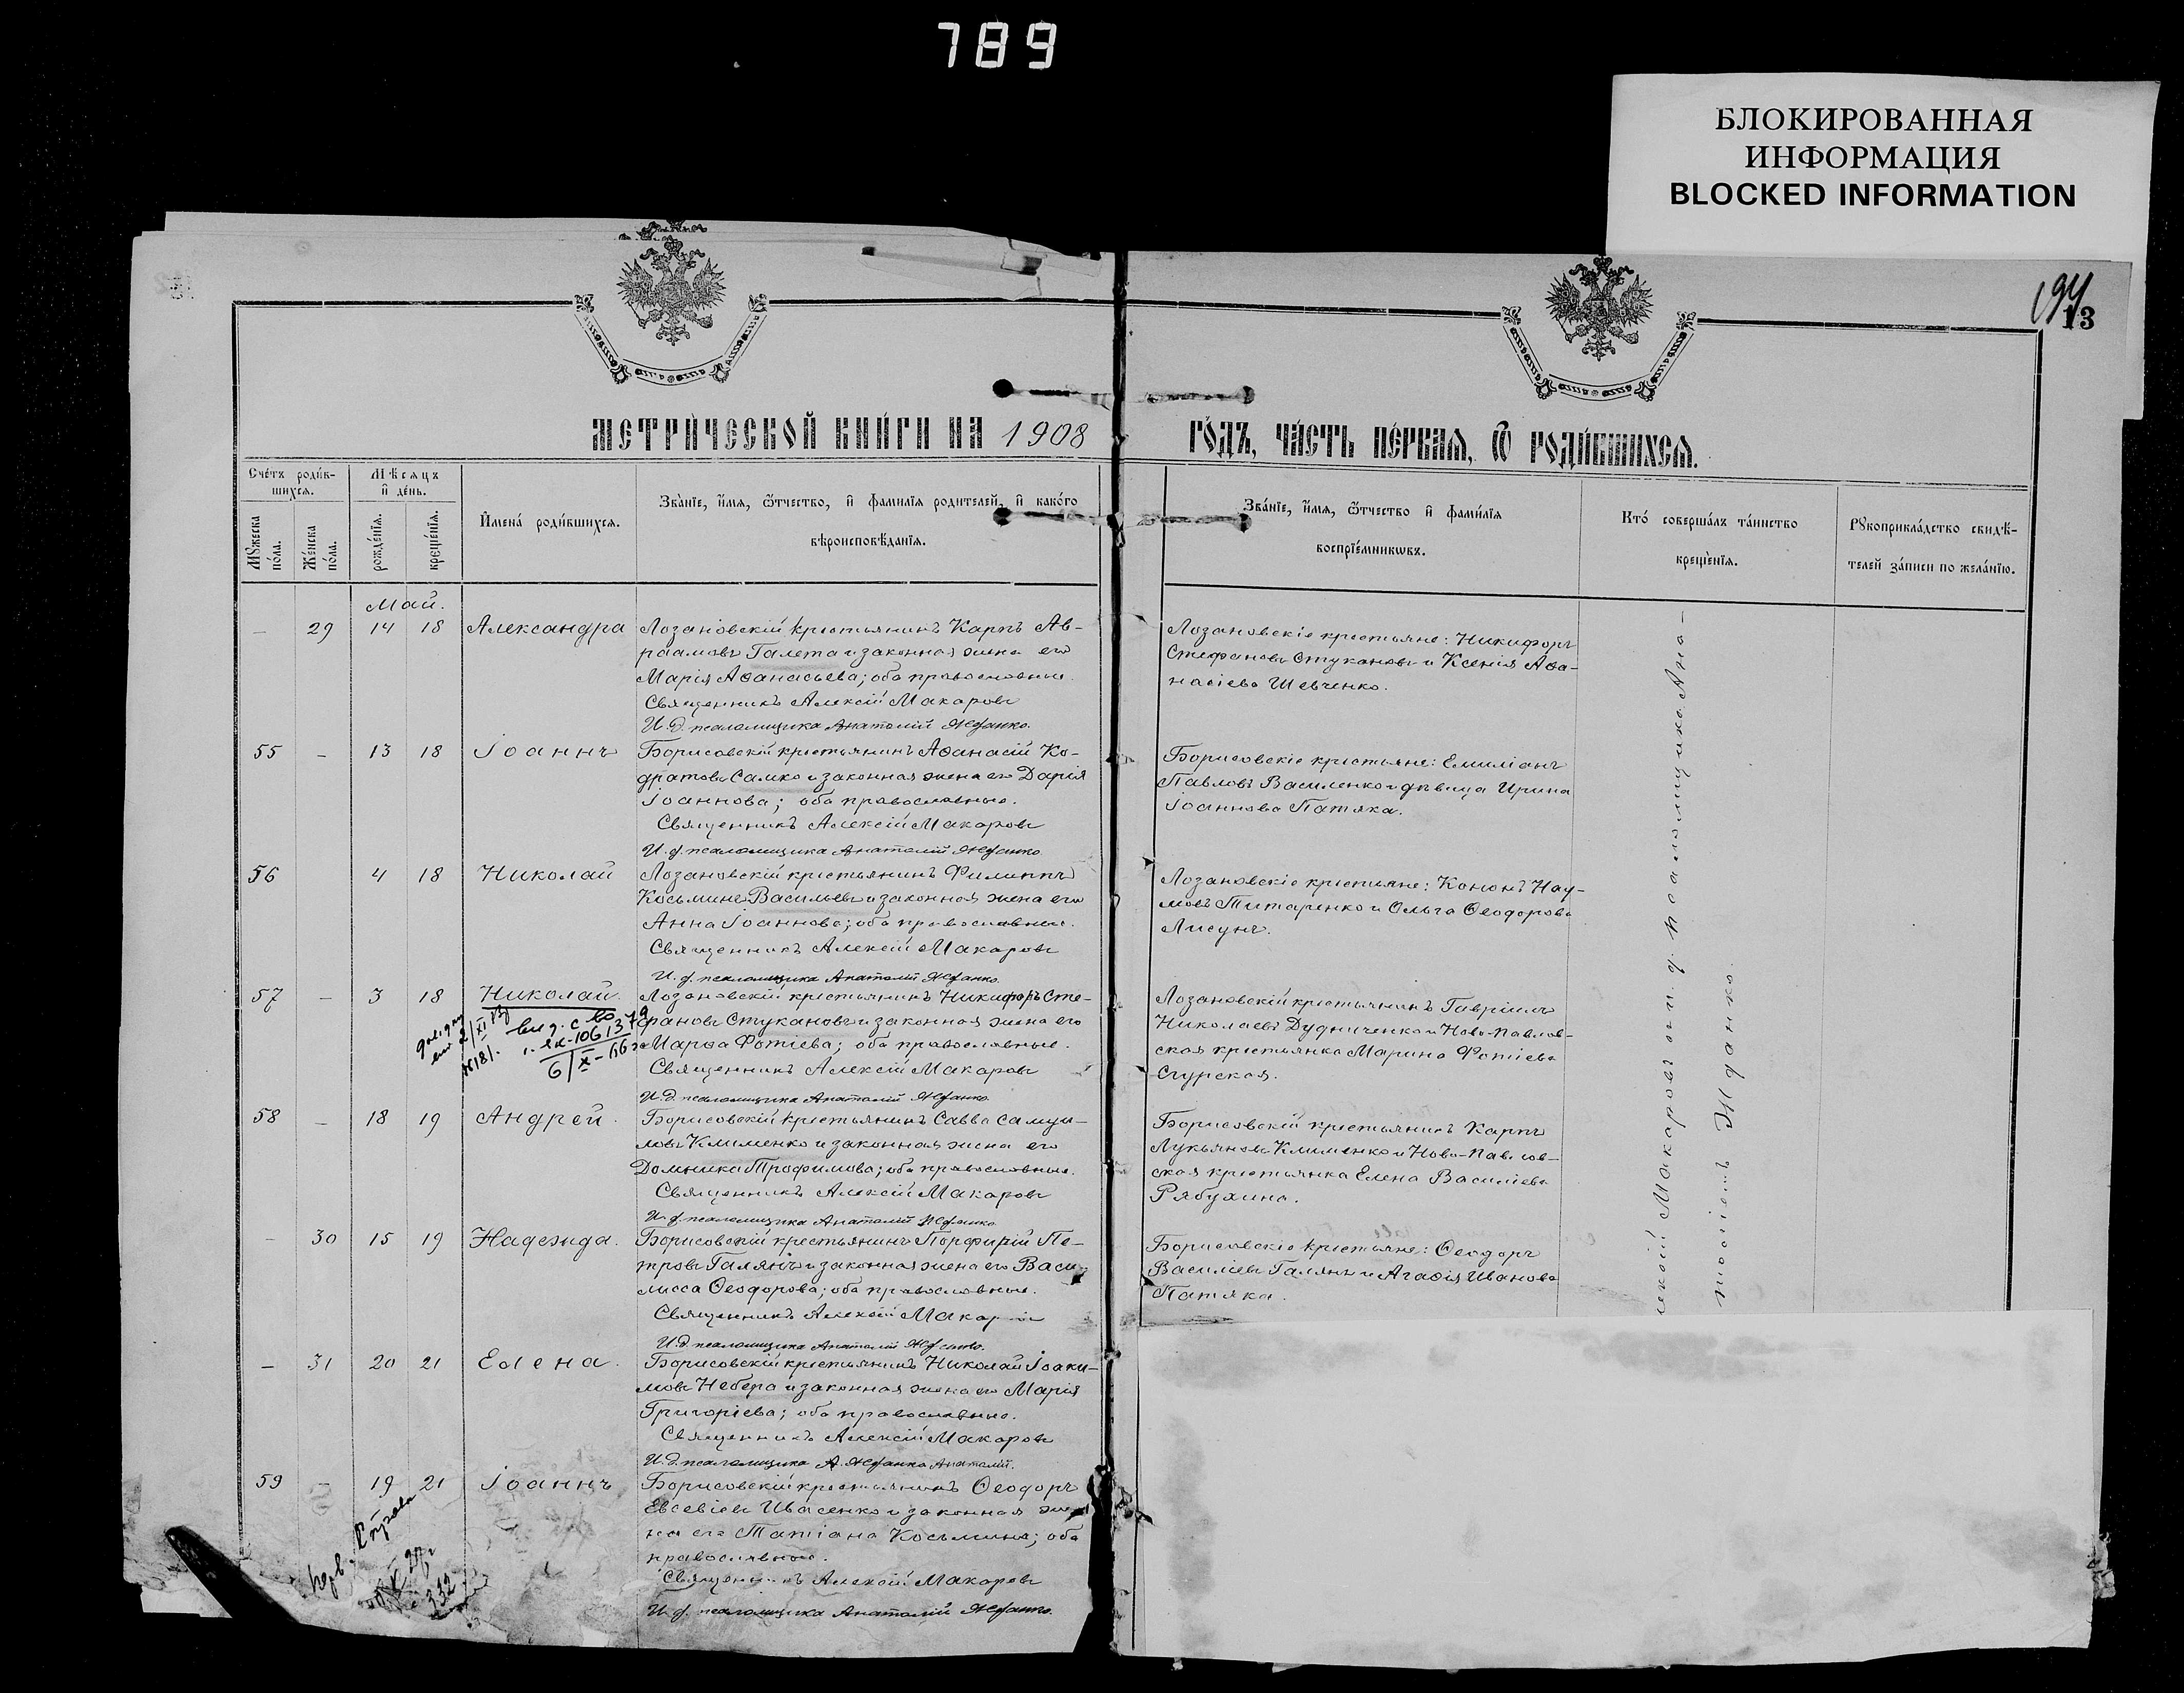 789
БЛОКИРОВАННАЯ
ИНФОРМАЦИЯ
BLOCKED INFORMATION
194
13
МЕТРИ́ЧЕСКОЙ КНИ́ГИ НА 1908
ГО́ДЪ, ЧА́СТЬ ПЕ́РВАѦ, Ѿ РОДИ́ВШИХСѦ.
Сче́тъ роди́в-
шихсѧ.
Мѣсѧцъ
и де́нь.
Мꙋжеска
по́ла.
Же́нска
по́ла.
рожде́нїѧ.
креще́нїѧ.
Имена́ роди́вшихсѧ.
Зва́нїе, и́мѧ, ѻ́тчество, и фамилїѧ родителей, и како́го
вѣроисповѣ́данїѧ.
Зва́нїе, и́мѧ, ѻ́тчество и фами́лїѧ
воспрїе́мникѡвъ.
Кто́ соверша́лъ та́инство
креще́нїѧ.
Рꙋкоприкла́дство свидѣ́-
телей за́писи по жела́нїю.
Май.
– 29 14 18 Александра
Лозановскій крестьянинъ Карпъ Ав-
раамовъ Галета и законная жена его
Марія Аѳанасьева; оба православные.
Священникъ Алексій Макаровъ
И. д. псаломщика Анатолій Жданко.
Лозановскіе крестьяне: Никифоръ
Стефановъ Стукановъ и Ксенія Аѳа-
насіева Шевченко.
55 – 13 18 Іоаннъ
Борисовскій крестьянинъ Аѳанасій Ко-
дратовъ Самко и законная жена его Дарія
Іоаннова; оба православные.
Священникъ Алексій Макаровъ
И. д. псаломщика Анатолій Жданко.
Борисовскіе крестьяне: Емиліанъ
Павловъ Василенко и дѣвица Ирина
Іоаннова Патяка.
56 4 18 Николай
Лозановскій крестьянинъ Филиппъ
Косьминъ Васильевъ и законная жена его
Анна Іоаннова; оба православные.
Священникъ Алексій Макаровъ
И. д. псаломщика Анатолій Жданко.
Лозановскіе крестьяне: Кононъ Нау-
мовъ Титаренко и Ольга Ѳеодорова
Лисунъ.
57 – 3 18 Николай.
Лозановскій крестьянинъ Никифоръ Сте-
фановъ Стукановъ и законная жена его
Марѳа Фотіева; оба православные.
Священникъ Алексій Макаровъ
И. д. псаломщика Анатолій Жданко.
Лозановскій крестьянинъ Гавріилъ
Николаевъ Дудниченко и Ново-Павлов-
ская крестьянка Марина Фотіева
Сгурская.
58 – 18 19 Андрей.
Борисовскій крестьянинъ Савва Самуи-
ловъ Клименко и законная жена его
Домника Трофимова; оба православные.
Священникъ Алексій Макаровъ
И. д. псаломщика Анатолій Жданко
Борисовскій крестьянинъ Карпъ
Лукьяновъ Клименко и Ново-Павлов-
ская крестьянка Елена Василіева
Рябухина.
– 30 15 19 Надежда.
Борисовскій крестьянинъ Порфирій Пе-
тровъ Галянъ и законная жена его Васи-
лисса Ѳеодорова; оба православные.
Священникъ Алексій Макаровъ
И. д. псаломщика Анатолій Жданко.
Борисовскіе крестьяне: Ѳеодоръ
Василіевъ Галянъ и Агаѳія Иванова
Патяка.
– 31 20 21 Елена.
Борисовскій крестьянинъ Николай Іоаки-
мовъ Небера и законная жена его Марія
Григоріева; оба православные.
Священникъ Алексій Макаровъ
И. д. псаломщика А. Жданко Анатолій.
59 – 19 21 Іоаннъ
Борисовскій крестьянинъ Ѳеодоръ
Евсевіевъ Ивасенко и законная же-
на его Татіана Косьмина; оба
православные.
Священникъ Алексій Макаровъ
И. д. псаломщика Анатолій Жданко.
лексій Макаровъ и и. д. псаломщика Ана-
толіемъ Жданко.